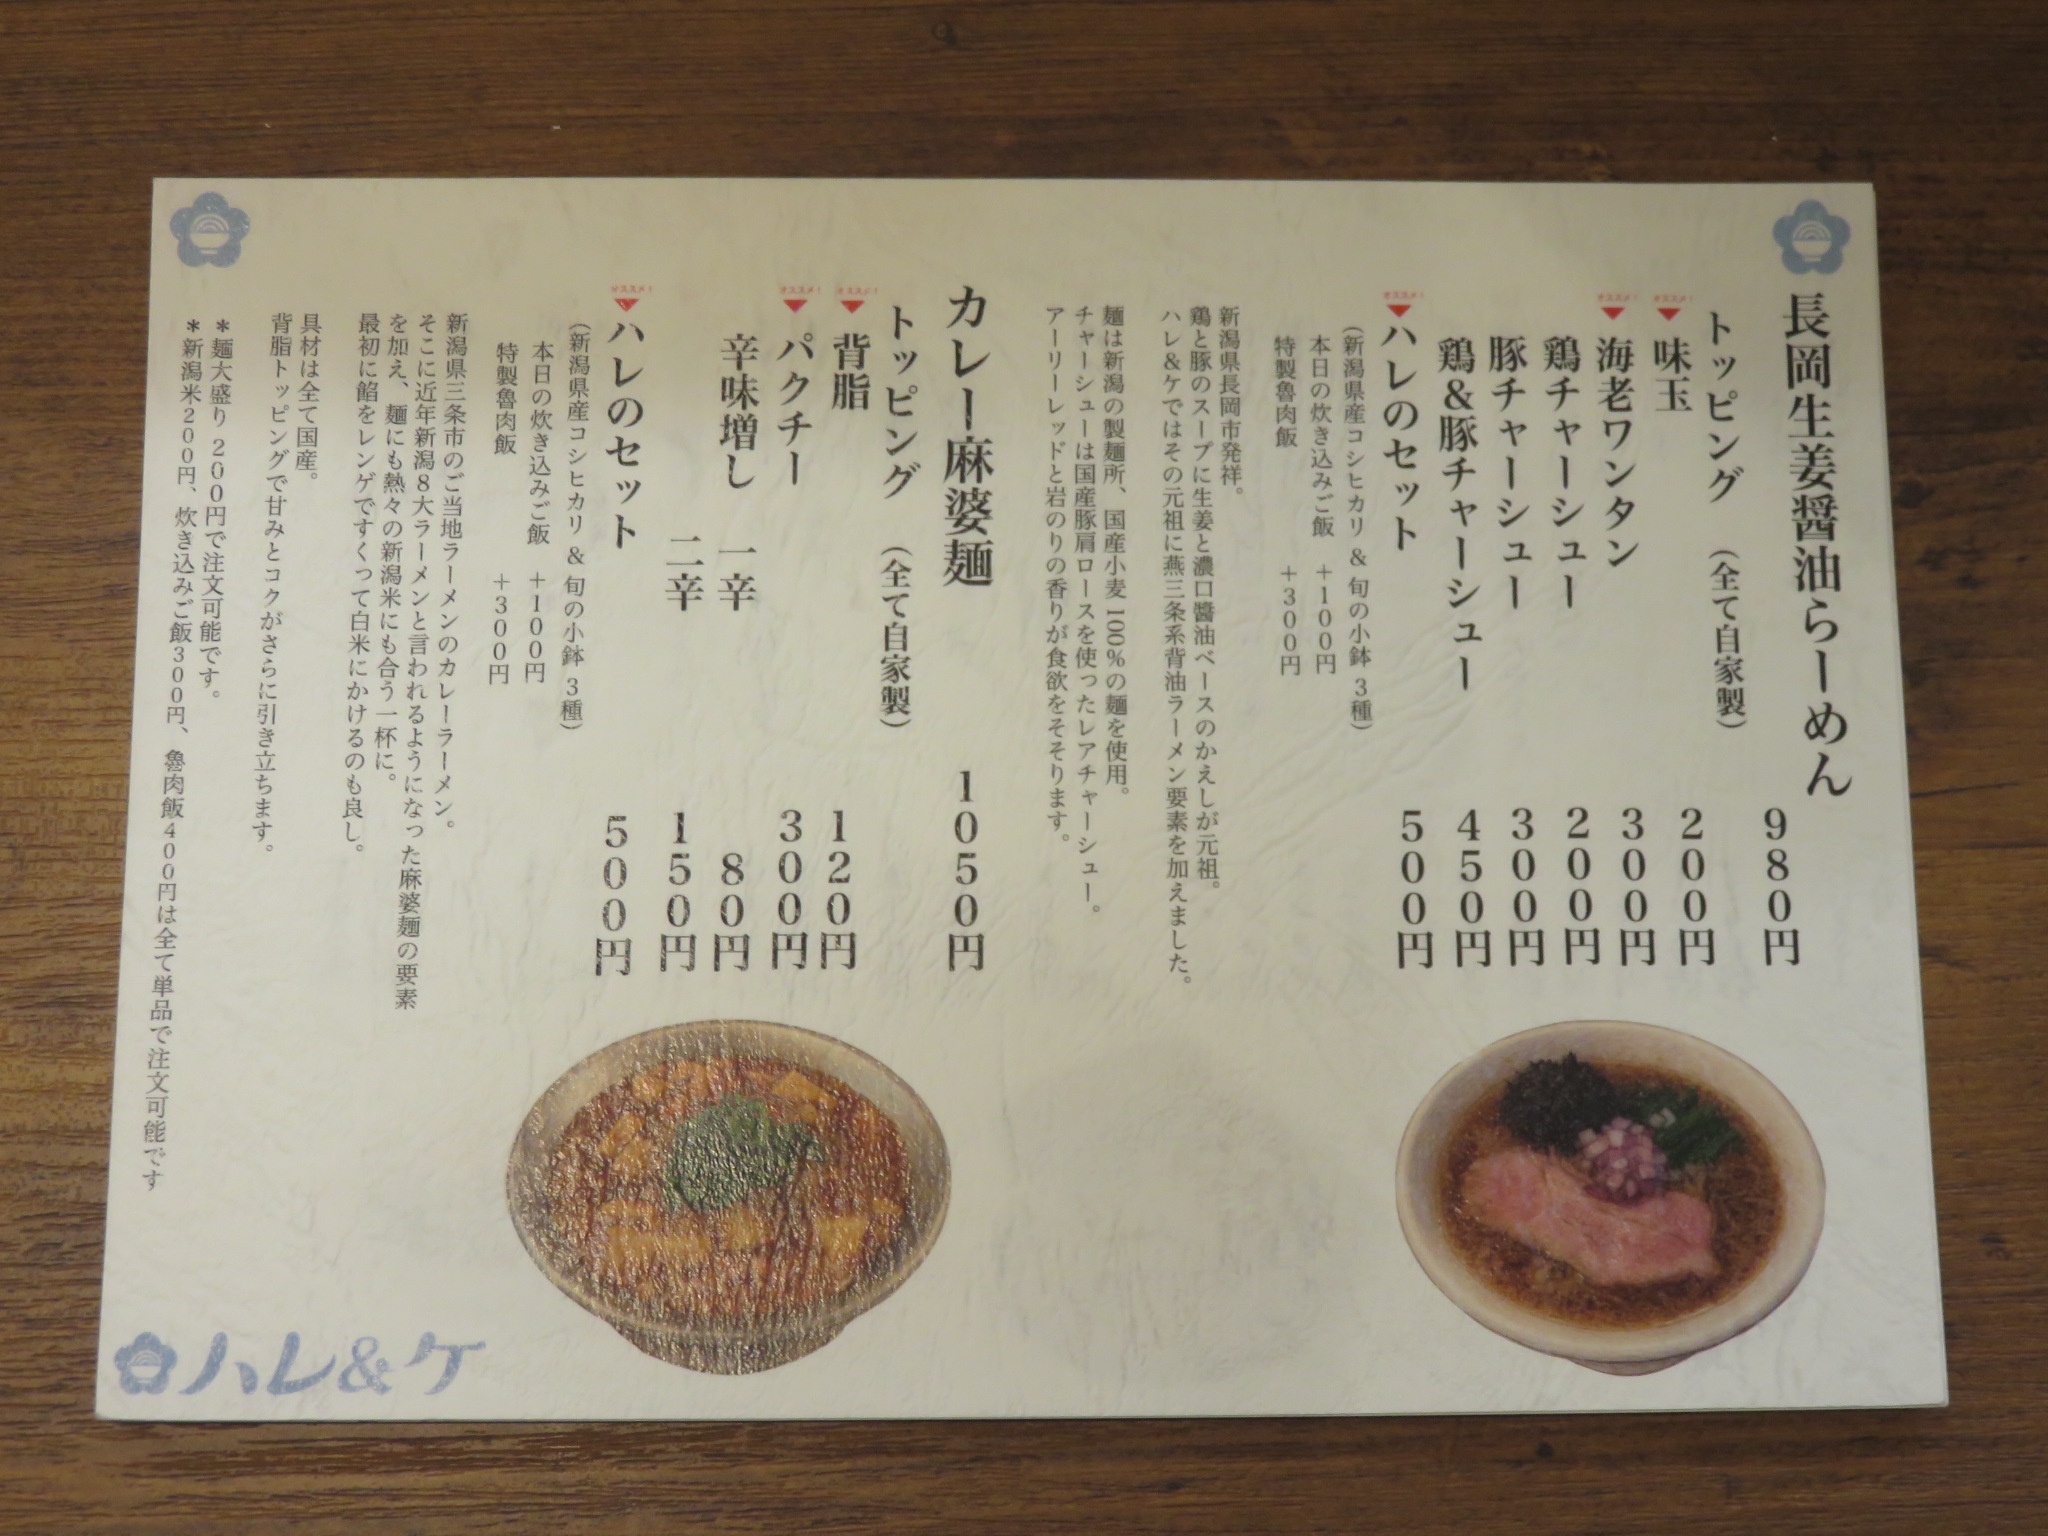 長岡生姜醤油らーめん 980円
トッピング (全て自家製)
オススメ!
味玉 200円
オススメ!
海老ワンタン 300円
鶏チャーシュー 200円
豚チャーシュー 300円
鶏&豚チャーシュー 450円
オススメ!
ハレのセット 500円
(新潟県産コシヒカリ & 旬の小鉢 3種)
本日の炊き込みご飯 +100円
特製魯肉飯 +300円
新潟県長岡市発祥。
鶏と豚のスープに生姜と濃口醤油ベースのかえしが元祖。
ハレ&ケではその元祖に燕三条系背油ラーメン要素を加えました。
麺は新潟の製麺所、国産小麦100%の麺を使用。
チャーシューは国産豚肩ロースを使ったレアチャーシュー。
アーリーレッドと岩のりの香りが食欲をそそります。
カレー麻婆麺 1050円
トッピング (全て自家製)
オススメ!
背脂 120円
オススメ!
パクチー 300円
辛味増し 一辛 80円
二辛 150円
オススメ!
ハレのセット 500円
(新潟県産コシヒカリ & 旬の小鉢 3種)
本日の炊き込みご飯 +100円
特製魯肉飯 +300円
新潟県三条市のご当地ラーメンのカレーラーメン。
そこに近年新潟8大ラーメンと言われるようになった麻婆麺の要素
を加え、麺にも熱々の新潟米にも合う一杯に。
最初に餡をレンゲですくって白米にかけるのも良し。
具材は全て国産。
背脂トッピングで甘みとコクがさらに引き立ちます。
*麺大盛り 200円で注文可能です。
*新潟米200円、炊き込みご飯300円、魯肉飯400円は全て単品で注文可能です
ハレ&ケ